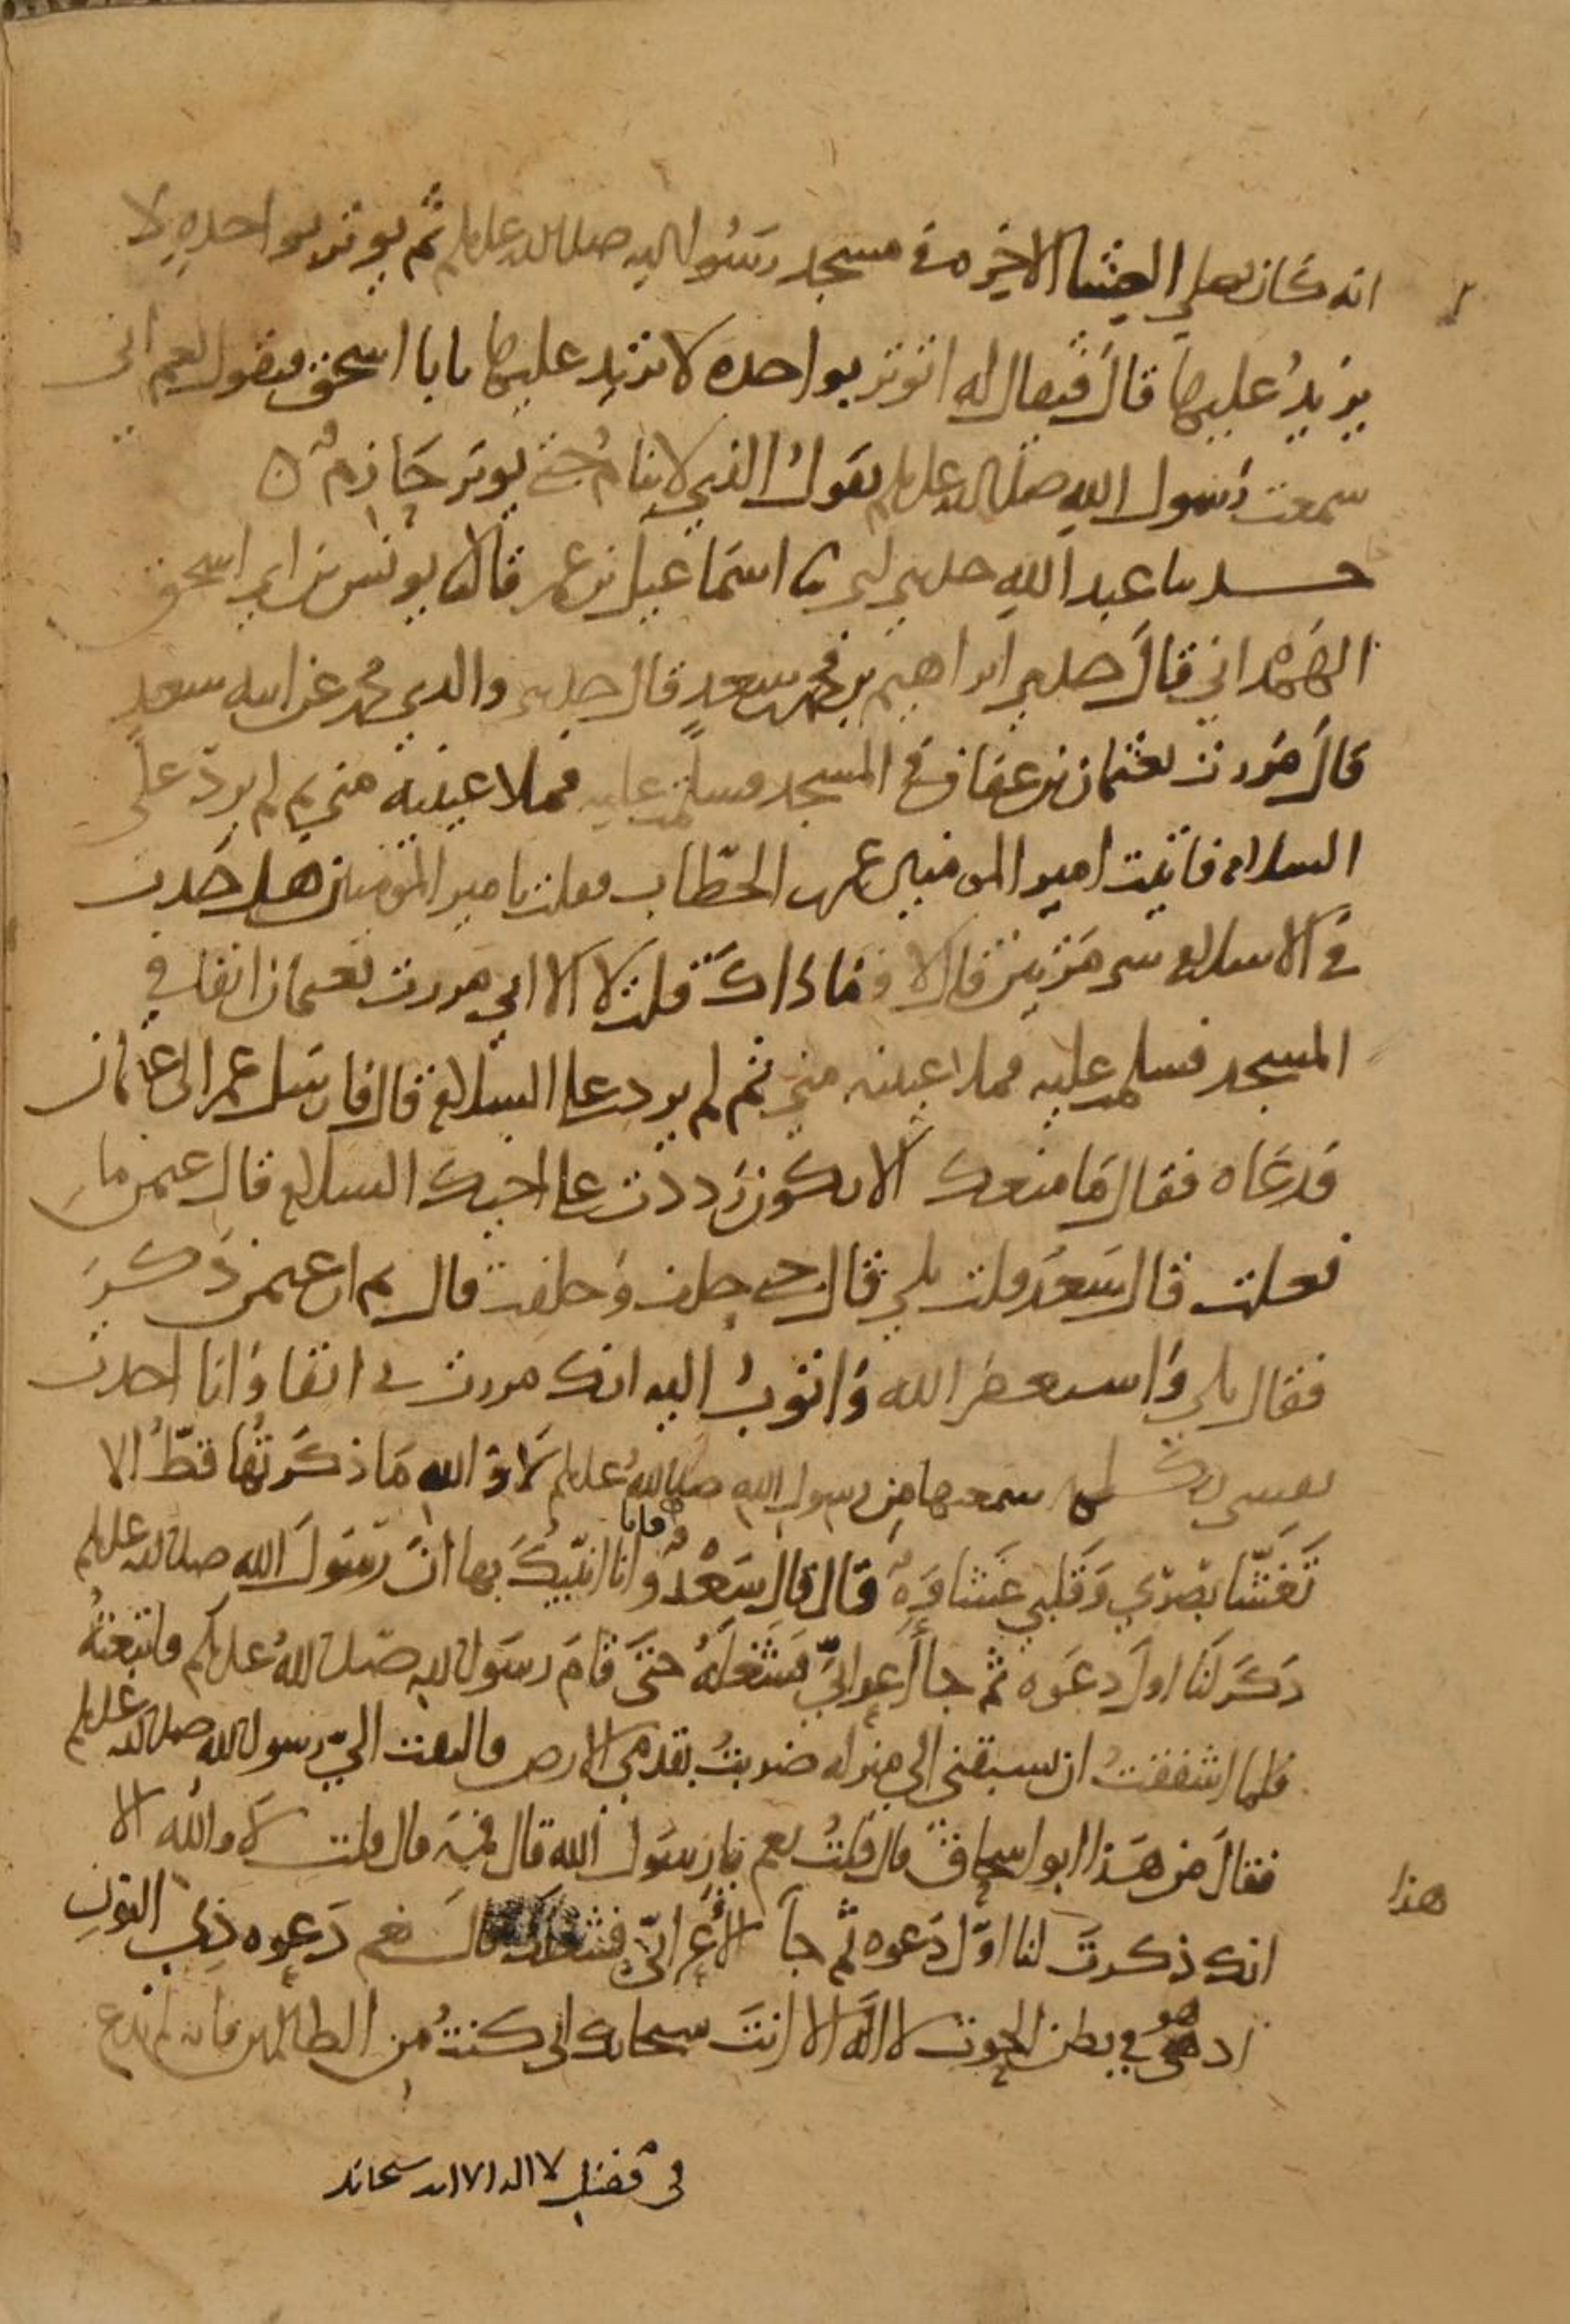 انه كان يصلي العشا الاخره في مسجد رسول الله صلى الله عليه وسلم ثم يوتر بواحده لا
يزيدُ عليها قال فيقال له اتوتر بواحده لا تزيد عليها يابا اسحق فيقول نعم اني
سمعت رسول الله صلى الله عليه وسلم يقول الذي لا ينام حتى يوتر حازم ه
حدثنا عبد الله حدثني ابي ثنا اسماعيل بن عمر قال ثنا يونس بن ابي اسحق
الهمداني قال حدثني ابراهيم بن محمد بن سعد قال حدثني والدي محمد عن ابيه سعد
قال مررت بعثمان بن عفان في المسجد فسلمت عليه فملا عينيه مني ثم لم يردّ علي
السلام فاتيت امير المومنين عمر بن الخطاب فقلت يا امير المومنين هل حدث
في الاسلام شي مرتين قال لا وما ذاك قلت لا الا اني مررت بعثمان انفا في
المسجد فسلمت عليه فملا عينيه مني ثم لم يرد علي السلام قال فارسل عمر الى عثمان
فدعاه فقال ما منعك الا تكون رددت على اخيك السلام قال عثمن ما
فعلت قال سعد قلت بلى قال حتى حلف وحلفت قال ثم ان عثمن ذكر
فقال بلى واستغفر الله واتوب اليه انك مررت بي انفا وانا احدث
نفسي بكلمه سمعتها من رسول الله صلى الله عليه وسلم لا والله ما ذكرتها قطّ الا
تغشّا بصري وقلبي غشاوه قال قال سعد وانا فانا انبيك بها ان رسول الله صلى الله عليه وسلم
ذكر لنا اول دعوه ثم جا أعرابيّ فشغله حتى قام رسول الله صلى الله عليه وسلم فاتبعته
فلما اشفقت ان يسبقني الى منزله ضربت بقدمي الارض فالتفت اليّ رسول الله صلى الله عليه وسلم
فقال من هذا ابو اسحاق قال قلت نعم يا رسول الله قال فمه قال قلت لا والله الا
انك ذكرت لنا اوّل دعوه ثم جا الاعرابيّ فشغلك قال نعم دعوه ذي النون
هذا
اذ هو في بطن الحوت لا اله الا انت سبحانك اني كنت من الظالمين فانه لم يدع
في فضل لا اله الا انت سبحانك